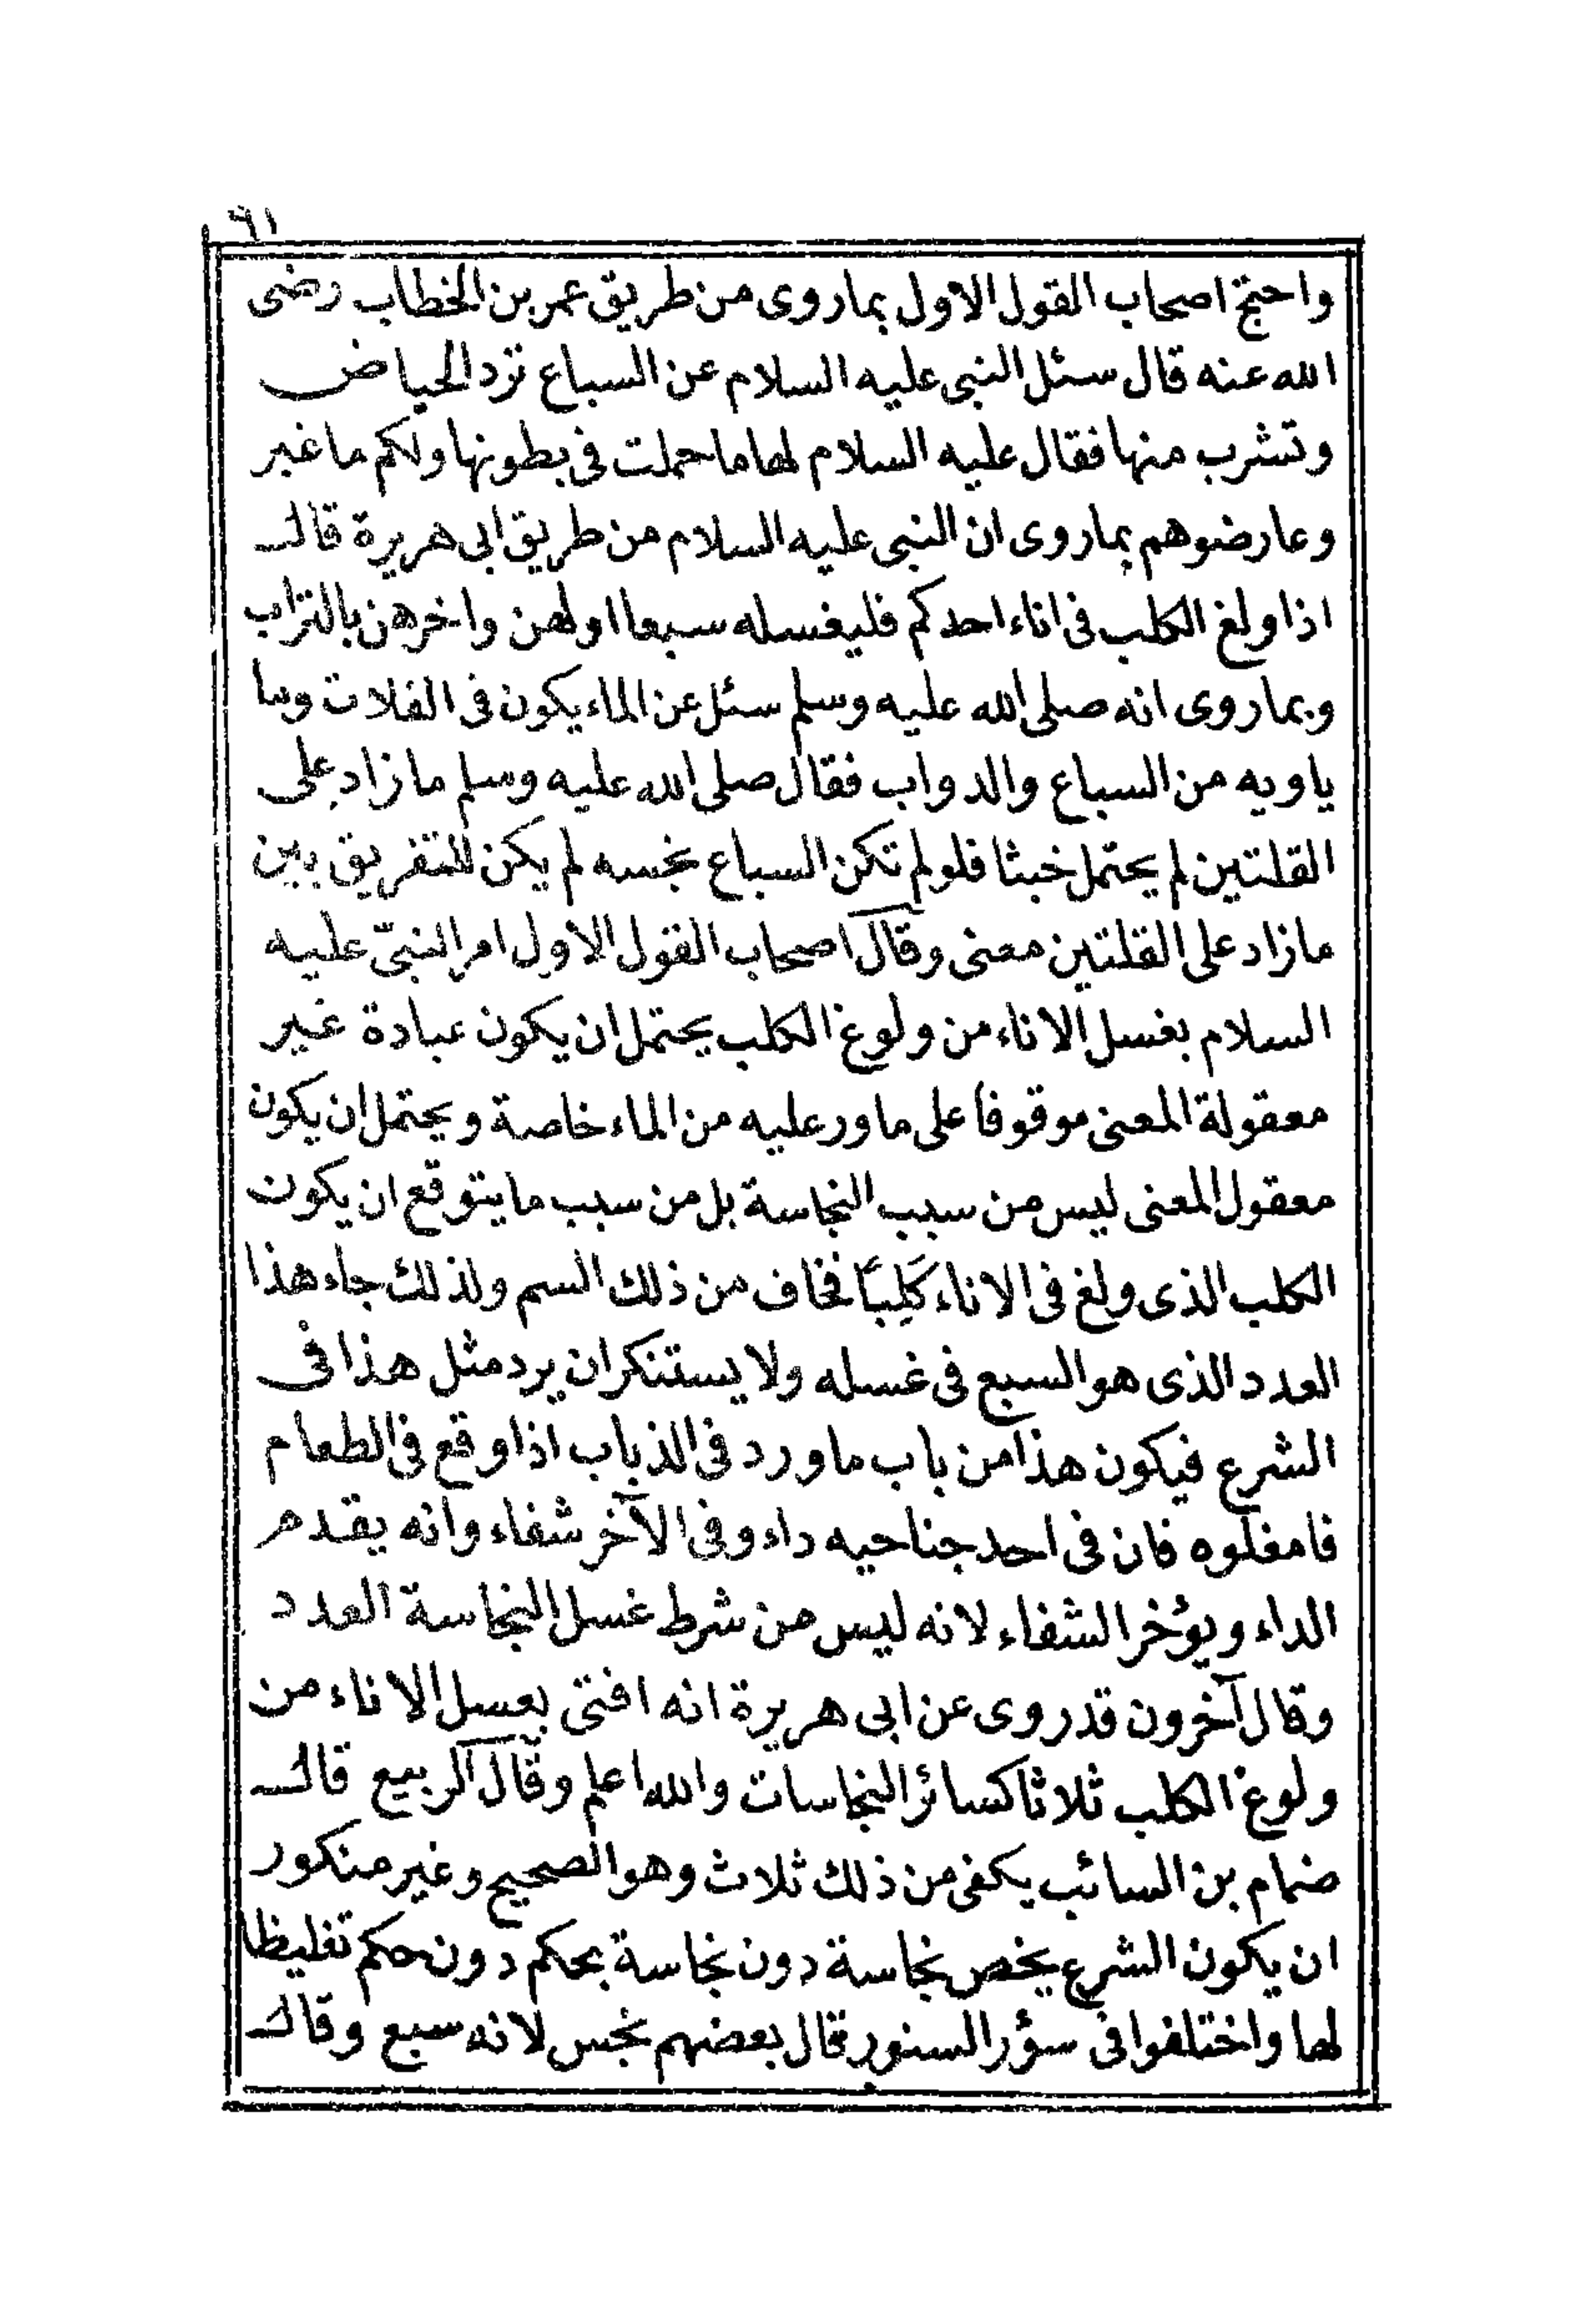 ٦١
واحتج اصحاب القول الاول بما روى من طريق عمر بن الخطاب رضى
الله عنه قال سئل النبى عليه السلام عن السباع ترد الحياض
وتشرب منها فقال عليه السلام لها ما حملت فى بطونها ولكم ما غبر
وعارضوهم بما روى ان النبى عليه السلام من طريق ابى هريرة قال
اذا ولغ الكلب فى اناء احدكم فليغسله سبعا اولهن واخرهن بالتراب
وبما روى انه صلى الله عليه وسلم سئل عن الماء يكون فى الفلات وما
ياويه من السباع والدواب فقال صلى الله عليه وسلم ما زاد على
القلتين لم يحتمل خبثا فلو لم تكن السباع نجسه لم يكن للتفريق بين
ما زاد على القلتين معنى وقال اصحاب القول الاول امر النبىّ عليه
السلام بغسل الاناء من ولوغ الكلب يحتمل ان يكون عبادة غير
معقولة المعنى موقوفا على ما ور عليه من الماء خاصة ويحتمل ان يكون
معقول المعنى ليس من سبب النجاسة بل من سبب ما يتوقع ان يكون
الكلب الذى ولغ فى الاناء كَلِبًا فخاف من ذلك السم ولذلك جاء هذا
العدد الذى هو السبع فى غسله ولا يستنكر ان يرد مثل هذا فى
الشرع فيكون هذا من باب ما ورد فى الذباب اذا وقع فى الطعام
فامغلوه فان فى احد جناحيه داء وفى الآخر شفاء وانه يقدم
الداء ويؤخر الشفاء لانه ليس من شرط غسل النجاسة العدد
وقال آخرون قد روى عن ابى هريرة انه افتى بعسل الاناء من
ولوغ الكلب ثلاثا كسائر النجاسات والله اعلم وقال الربيع قال
ضمام بن السائب يكفى من ذلك ثلاث وهو الصحيح وغير منكور
ان يكون الشرع يخص نجاسة دون نجاسة بحكم دون حكم تغليظا
لها واختلفوا فى سؤر السنور فقال بعضهم نجس لانه سبع وقال